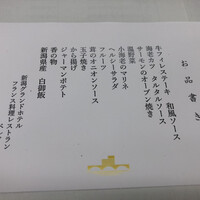 お品書き
牛フィレステーキ　和風ソース
海老カツ　タルタルソース
サーモンのオーブン焼き
温野菜
小海老のマリネ
ヘルシーサラダ
フルーツ
茸のオニオンソース
玉子焼き
から揚げ
ジャーマンポテト
香の物
新潟県産　白御飯
新潟グランドホテル
フランス料理レストラン